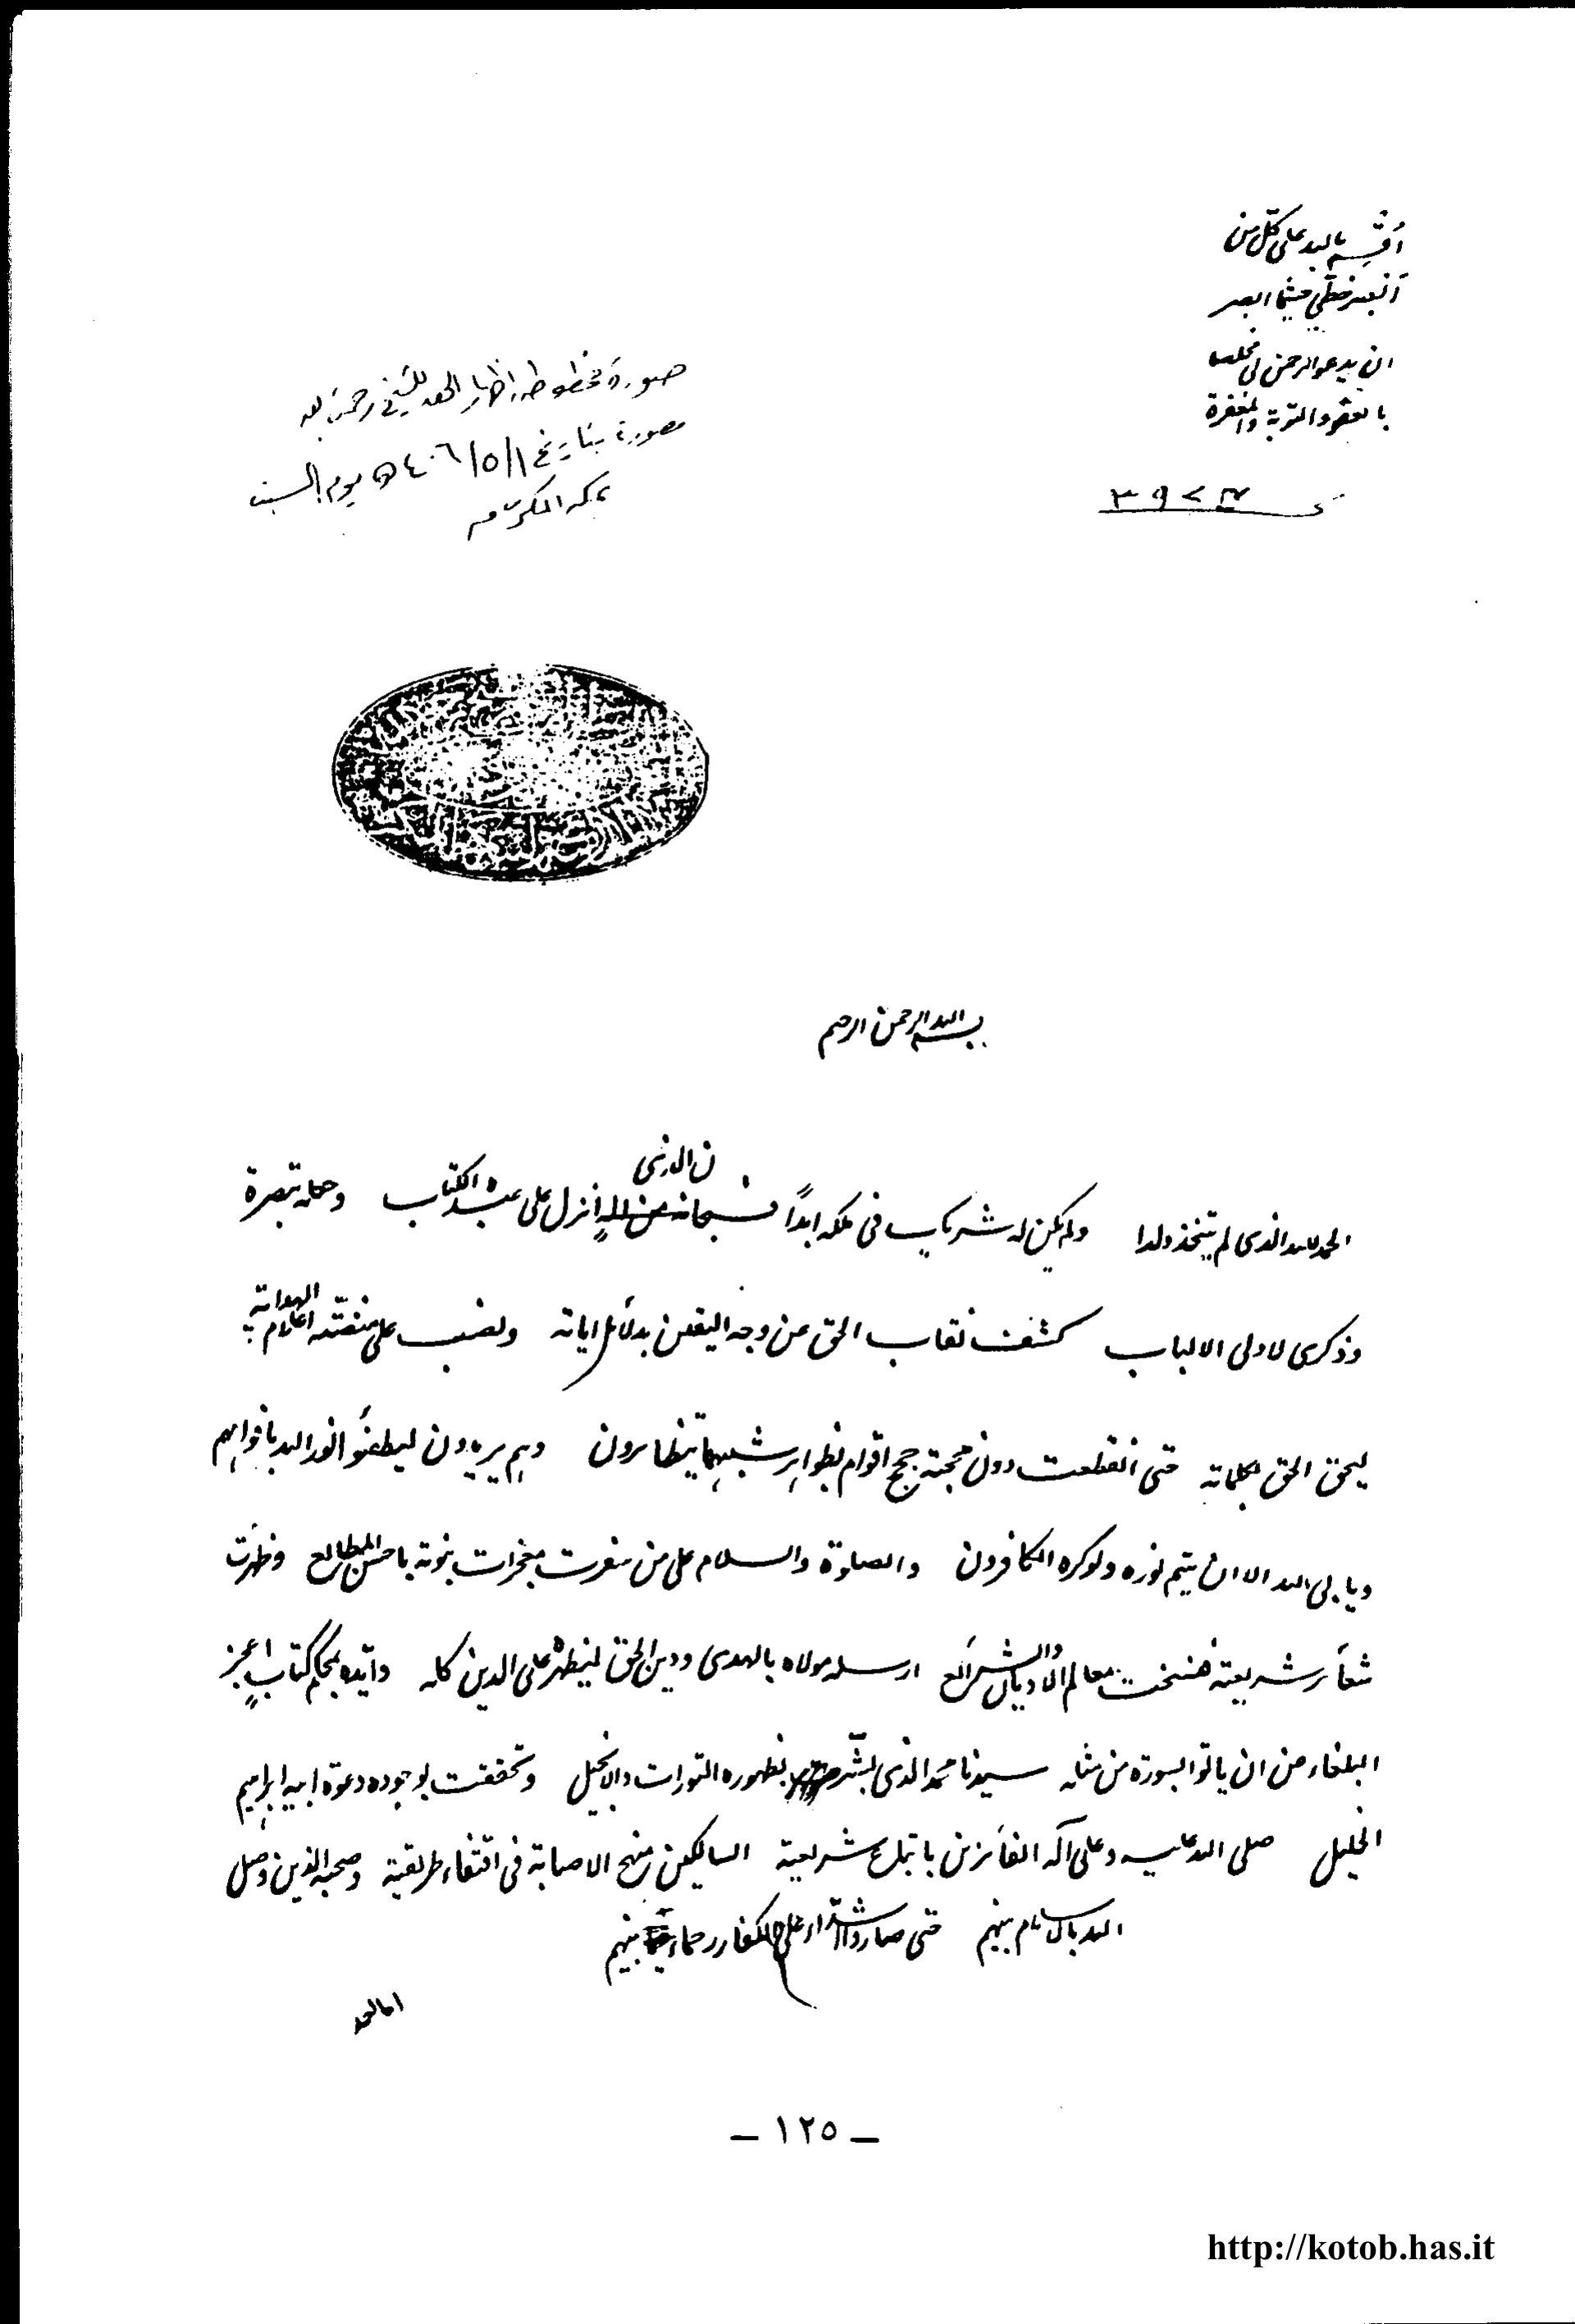 أُقْسِم بالله على كلّ من
أبصر خطّي حيثما ابصر
ان يدعو الرحمن لي مخلصا
بالعفو والتوبة والمغفرة
صورة مخطوطة اظهار الحق للشيخ رحمة الله
مصورة بتاريخ ١/٥/١٤٠٦ هـ يوم السبت
بمكة المكرّمة
بسم الله الرحمن الرحيم
ن الذى
الحمد لله الذى لم يتخذ ولدا ولم يكن له شريك فى ملكه ابداً فسبحانه انزل على عبده الكتاب وجعله تبصرة
وذكرى لاولى الالباب كشف نقاب الحق عن وجه اليقين بدلائل اياته ونصب على منصّته اعلام الهداية
ليحق الحق بكلماته حتى انقطعت دون محجته حجج اقوام بظواهر شبهها يتظاهرون وهم يريدون ليطفئوا نور الله بافواههم
ويابى الله الا ان يتم نوره ولوكره الكافرون والصلوة والسلام على من سفرت معجزات نبوته باحسن المطالع وظهرت
شعائر شريعته فنسخت معالم الاديان والشرائع ارسله مولاه بالهدى ودين الحق ليظهره على الدين كله وايّده بمحكم كتابٍ اعجز
البلغاء من ان ياتوا بسورة من مثله سيدنا محمد الذى بشّر بظهوره التورات والانجيل وتحققت بوجوده دعوة ابيه ابراهيم
الخليل صلى الله عليه وعلى آله الفائزين باتباع شريعته السالكين منهج الاصابة فى اقتفاء طريقته وصحبه الذين وصل
الله بالاسلام بينهم حتى صاروا اشداء على الكفار رحماء بينهم
اما بعد
– ١٢٥ –
http://kotob.has.it